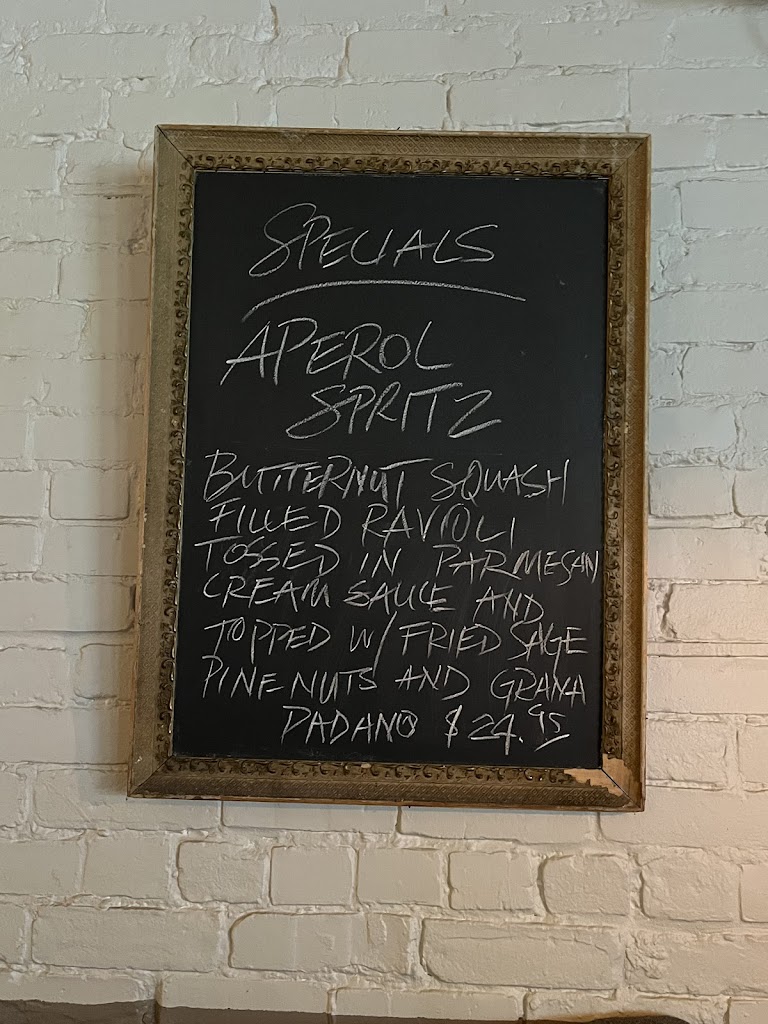 SPECIALS
APEROL
SPRITZ
BUTTERNUT SQUASH
FILLED RAVIOLI
TOSSED IN PARMESAN
CREAM SAUCE AND
TOPPED W/ FRIED SAGE
PINE NUTS AND GRANA
PADANO $24.95